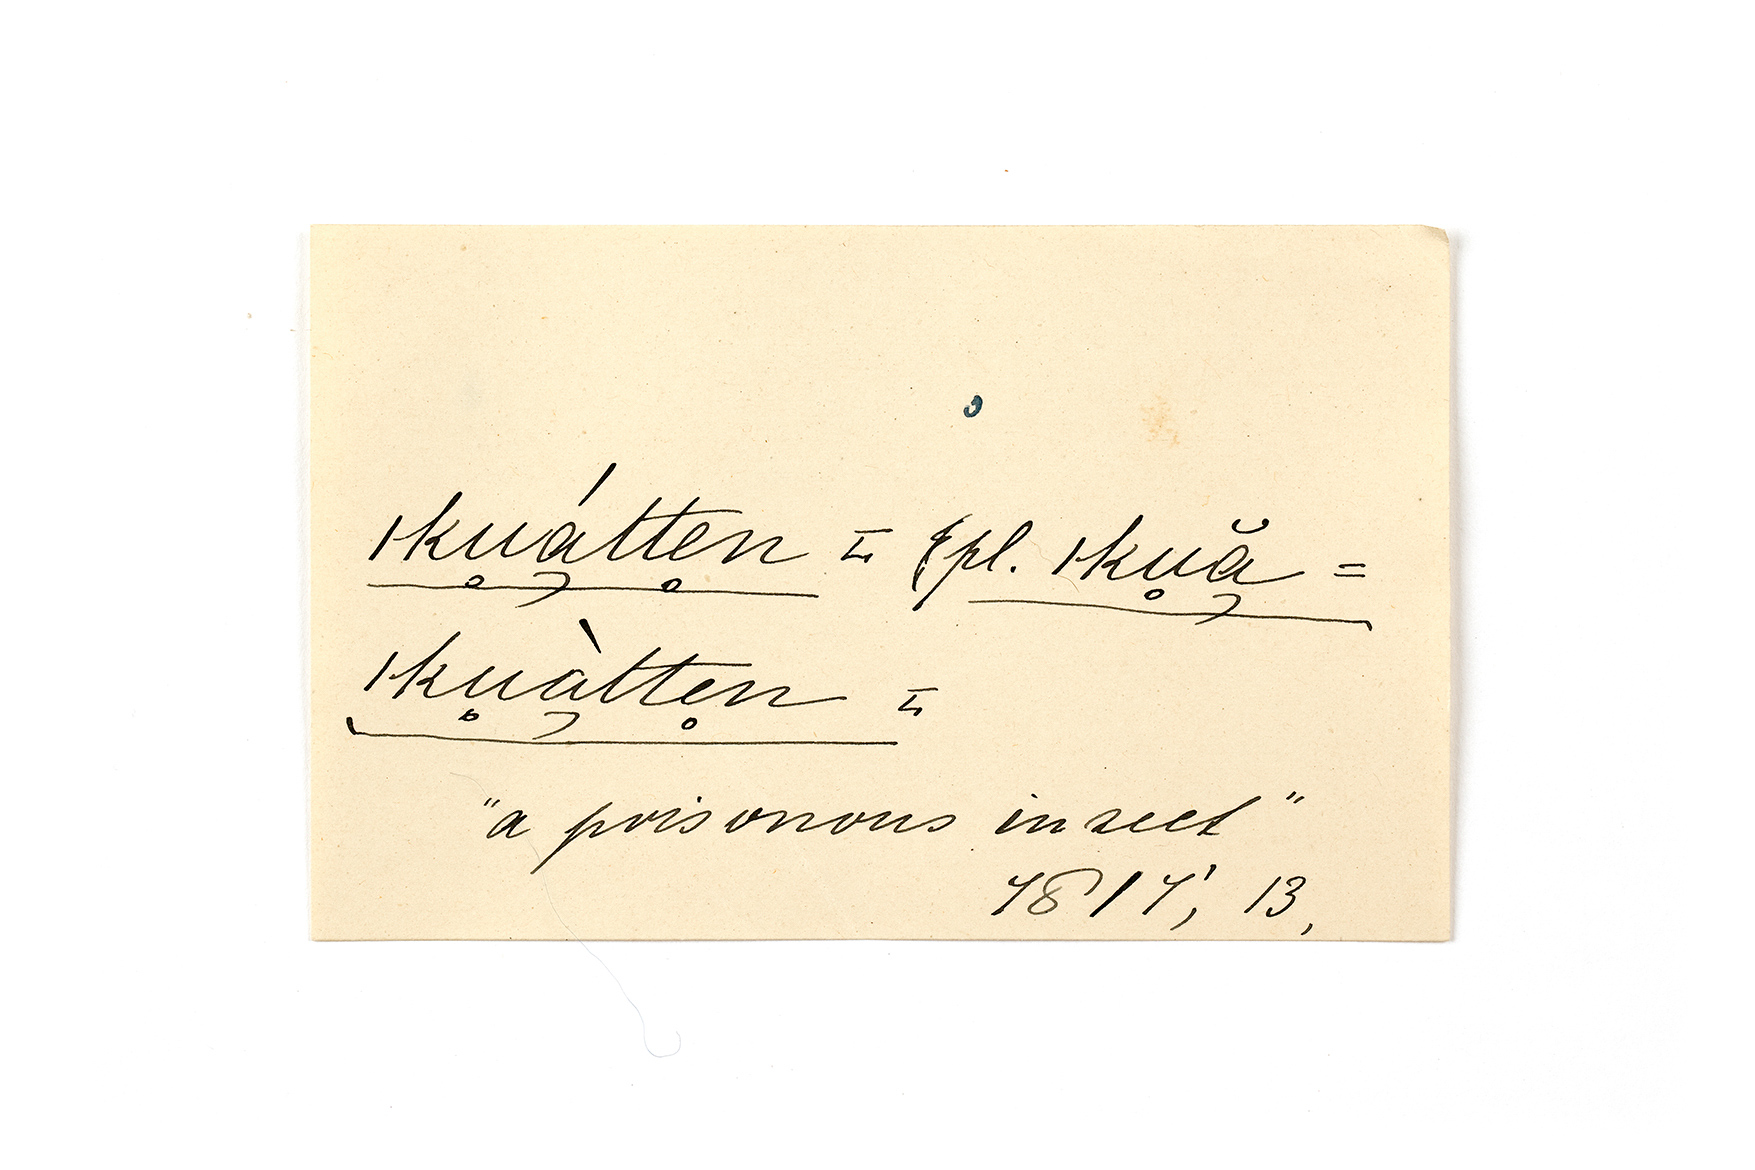 ıku̥á̡̡tte̥n ⌶ (pl. ıku̥ă̡ =
ıku̥à̡tte̥n ⌶
"a poisonous insect"
7817', 13,